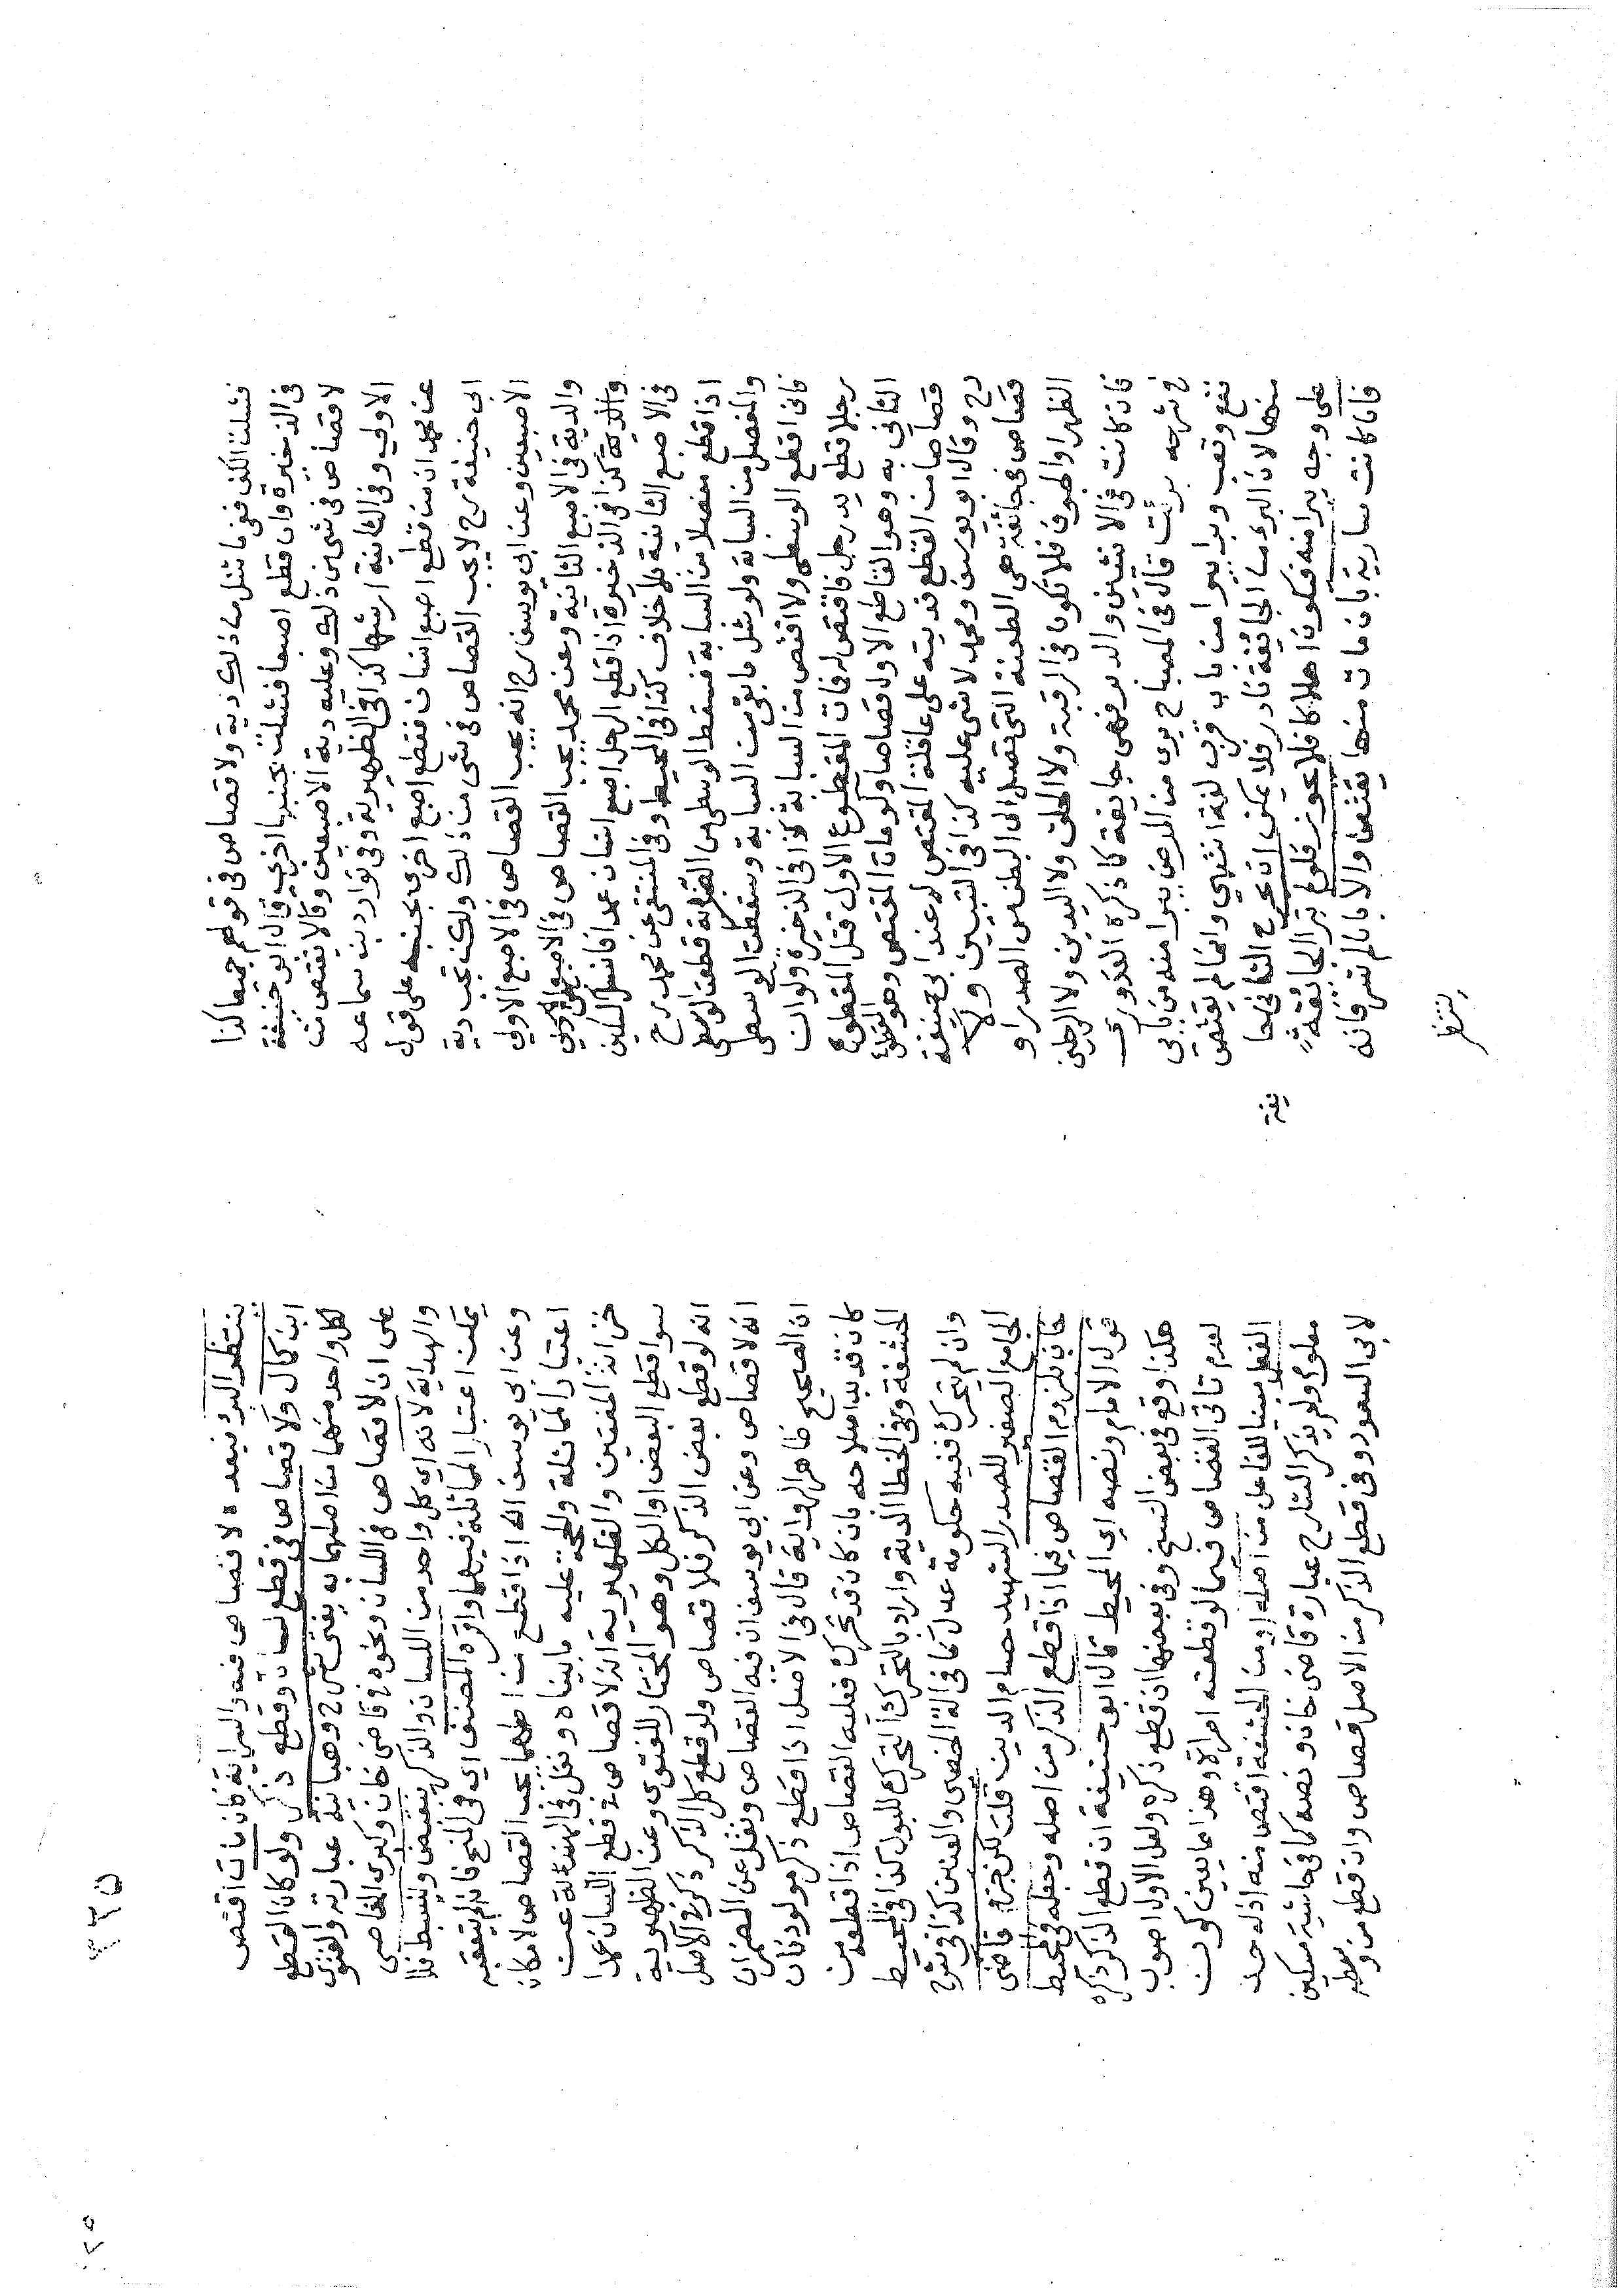 فشلت الكف ففى ما شل من ذلك دية ولا قصاص فى قولهم جميعا كذا
فى الذخيرة وان قطع اصبعا فشلت بجنبها اخرى قال ابو حنيفة
لا قصاص فى شئ من ذلك وعليه دية الاصبعين وقالا يقتص من
الاولى وفى الثانية ارشها كذا فى الظهيرية وفى نوادر بن سماعه
عن محمد ان من قطع اصبع انسان فقطع اصبع اخرى بجنبه على قول
ابى حنيفة رح لا يجب القصاص فى شئ من ذلك ولكن تجب دية
الاصبعين وعن ابى يوسف رح انه يجب القصاص فى الاصبع الاولى
والدية فى الاصبع الثانية وعن محمد يجب القصاص فى الاصبعين
والدية كذا فى الذخيرة اذا قطع الرجل اصبع انسان عمدا فانسل السكين
فى الاصبع الثانية بلا خلاف كذا فى المحيط وفى المنتقى عن محمد رح
اذا قطع مفصلا من السبابة فسقط الوسطى من الضربة قطعت الوسطى
والمفصل من السبابة ولو شل ما بقى من السبابة وسقطت الوسطى
فانى اقطع الوسطى ولا اقتص من السبابة كذا فى الذخيرة ولو ان
رجلا قطع يد رجل فاقتص له فمات المقطوع الاول قتل المقطوع
الثانى به وهو القاطع الاول قصاصا ولو مات المقتص وهو المقطوع
قصاصا من القطع فديته على عاقلة المقتص له عند ابى حنيفة
رح وقال ابو يوسف ومحمد لا شئ عليه كذا فى التبيين ولا
قصاص فى جائفة هى الطعنة التى تصل الى البطن من الصدر او
الظهر او الجوف فلا تكون فى الرقبة ولا الحلق ولا اليدين ولا الرجلين
فان كانت فى الانثيين والدبر فهى جايفة كما ذكره القدورى
فى شرحه برئت قال فى المصباح برى من المرض يبرا منه من بابى
نفع وتعب وبرا يبرا من باب قرب لغة انتهى وانما لم يقتص
منها لان البرء من الجايفة نادر فلا يمكن ان يجرح الثانى جا يفة
على وجه يبرا منه فيكون اهلاكا فلا يجوز فلو لم تبرا الجائفة
فان كانت سارية بان مات منها يقتص والا بان لم تسر فانه
ينتظر
٣٢٥
ينتظر البرء فبعده لا قصاص فيه والسراية كان مات اقتص
ابن كمال ولا قصاص فى قطع لسان وقطع ذكر ولو كان القطع
لكل واحد منهما من اصلهما به يفتى شرح وهبانية عبارته والفتوى
على ان لا قصاص فى اللسان ونحوه فى قاضى خان وكبرى الخاصى
والهداية لانه اى كل واحد من اللسان والذكر ينقبض وينبسط فلا
يمكن اعتبار المماثلة فيهما واقره المصنف اى فى المنح فانه لم يتعقبه
وعن ابى يوسف انه اذا قطع من اصلهما يجب القصاص لامكان
اعتبار المماثلة والحجة عليه ما بيناه ونقل فى الهندية عن
خزانة المفتين والظهيرية انه لا قصاص فى قطع اللسان عمدا
سوا قطع البعض او الكل وهو المختار للفتوى وعن الظهيرية
انه لو قطع بعض الذكر فلا قصاص ولو قطع كل الذكر ذكر فى الاصل
انه لا قصاص وعن ابى يوسف ان فيه القصاص ونقل عن المضمرات
ان الصحيح ظاهر الرواية قال فى الاصل اذا قطع ذكر مولود فان
كان قد بدا صلاحه بان كان قد تحرك فعليه القصاص اذا قطعه من
الحشفة وفى الخطا الدية واراد بالتحرك التحرك للبول كذا فى المحيط
وان لم يتحرك ففيه حكومة عدل كما فى آلة الخصى والعنين كذا فى شرح
الجامع الصغير للصدر الشهيد حسام الدين قلت لكن جزم قاضى
خان بلزوم القصاص فيما اذا قطع الذكر من اصله وجعله فى المحيط
قول الامام ونصه اى المحيط قال ابو حنيفة ان قطع الذكر ذكره
هكذا وقع فى بعض النسخ وفى بعضها ان قطع ذكره ولعل الاول اصوب
لعدم تاتى القصاص فيما لو قطعته امراة وهذا مما يعين كون
الفعل مبنيا للفاعل من اصله او من الحشفة اقتص منه اذ له حد
معلوم ولم يذكر الشارح عبارة قاضى خان ونصه كما فى حاشية مسكين
لابى السعود وفى قطع الذكر من الاصل قصاص وان قطع من وسطه